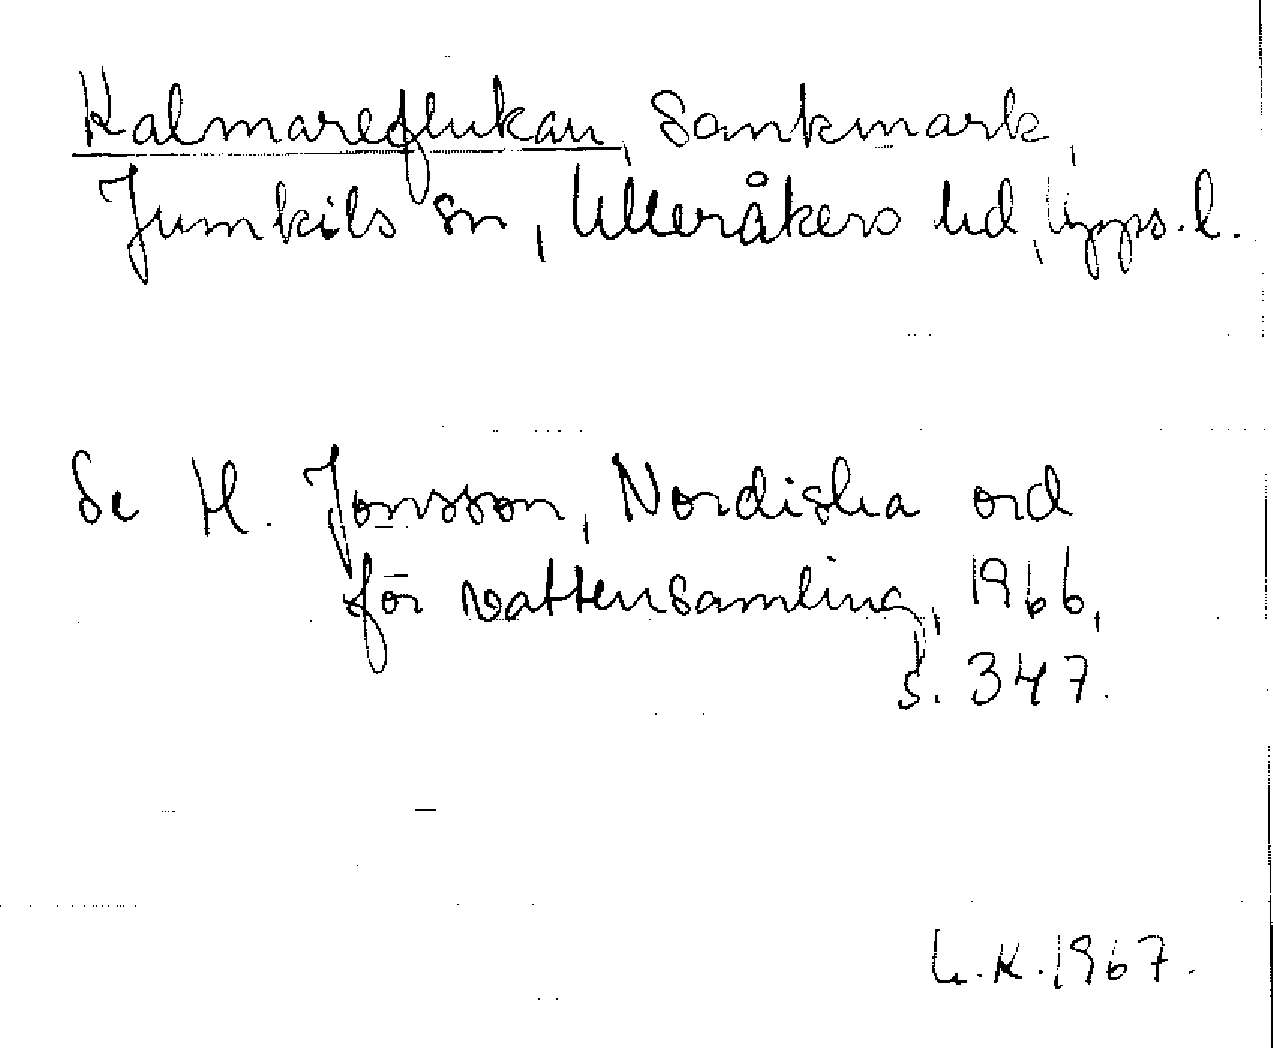 Kalmareflukan, Sankmark,
Jumkils sn, Ulleråkers hd, Upps. l.
Se H. Jonsson, Nordiska ord
för vattensamling, 1966,
s. 347.
L.K. 1967.